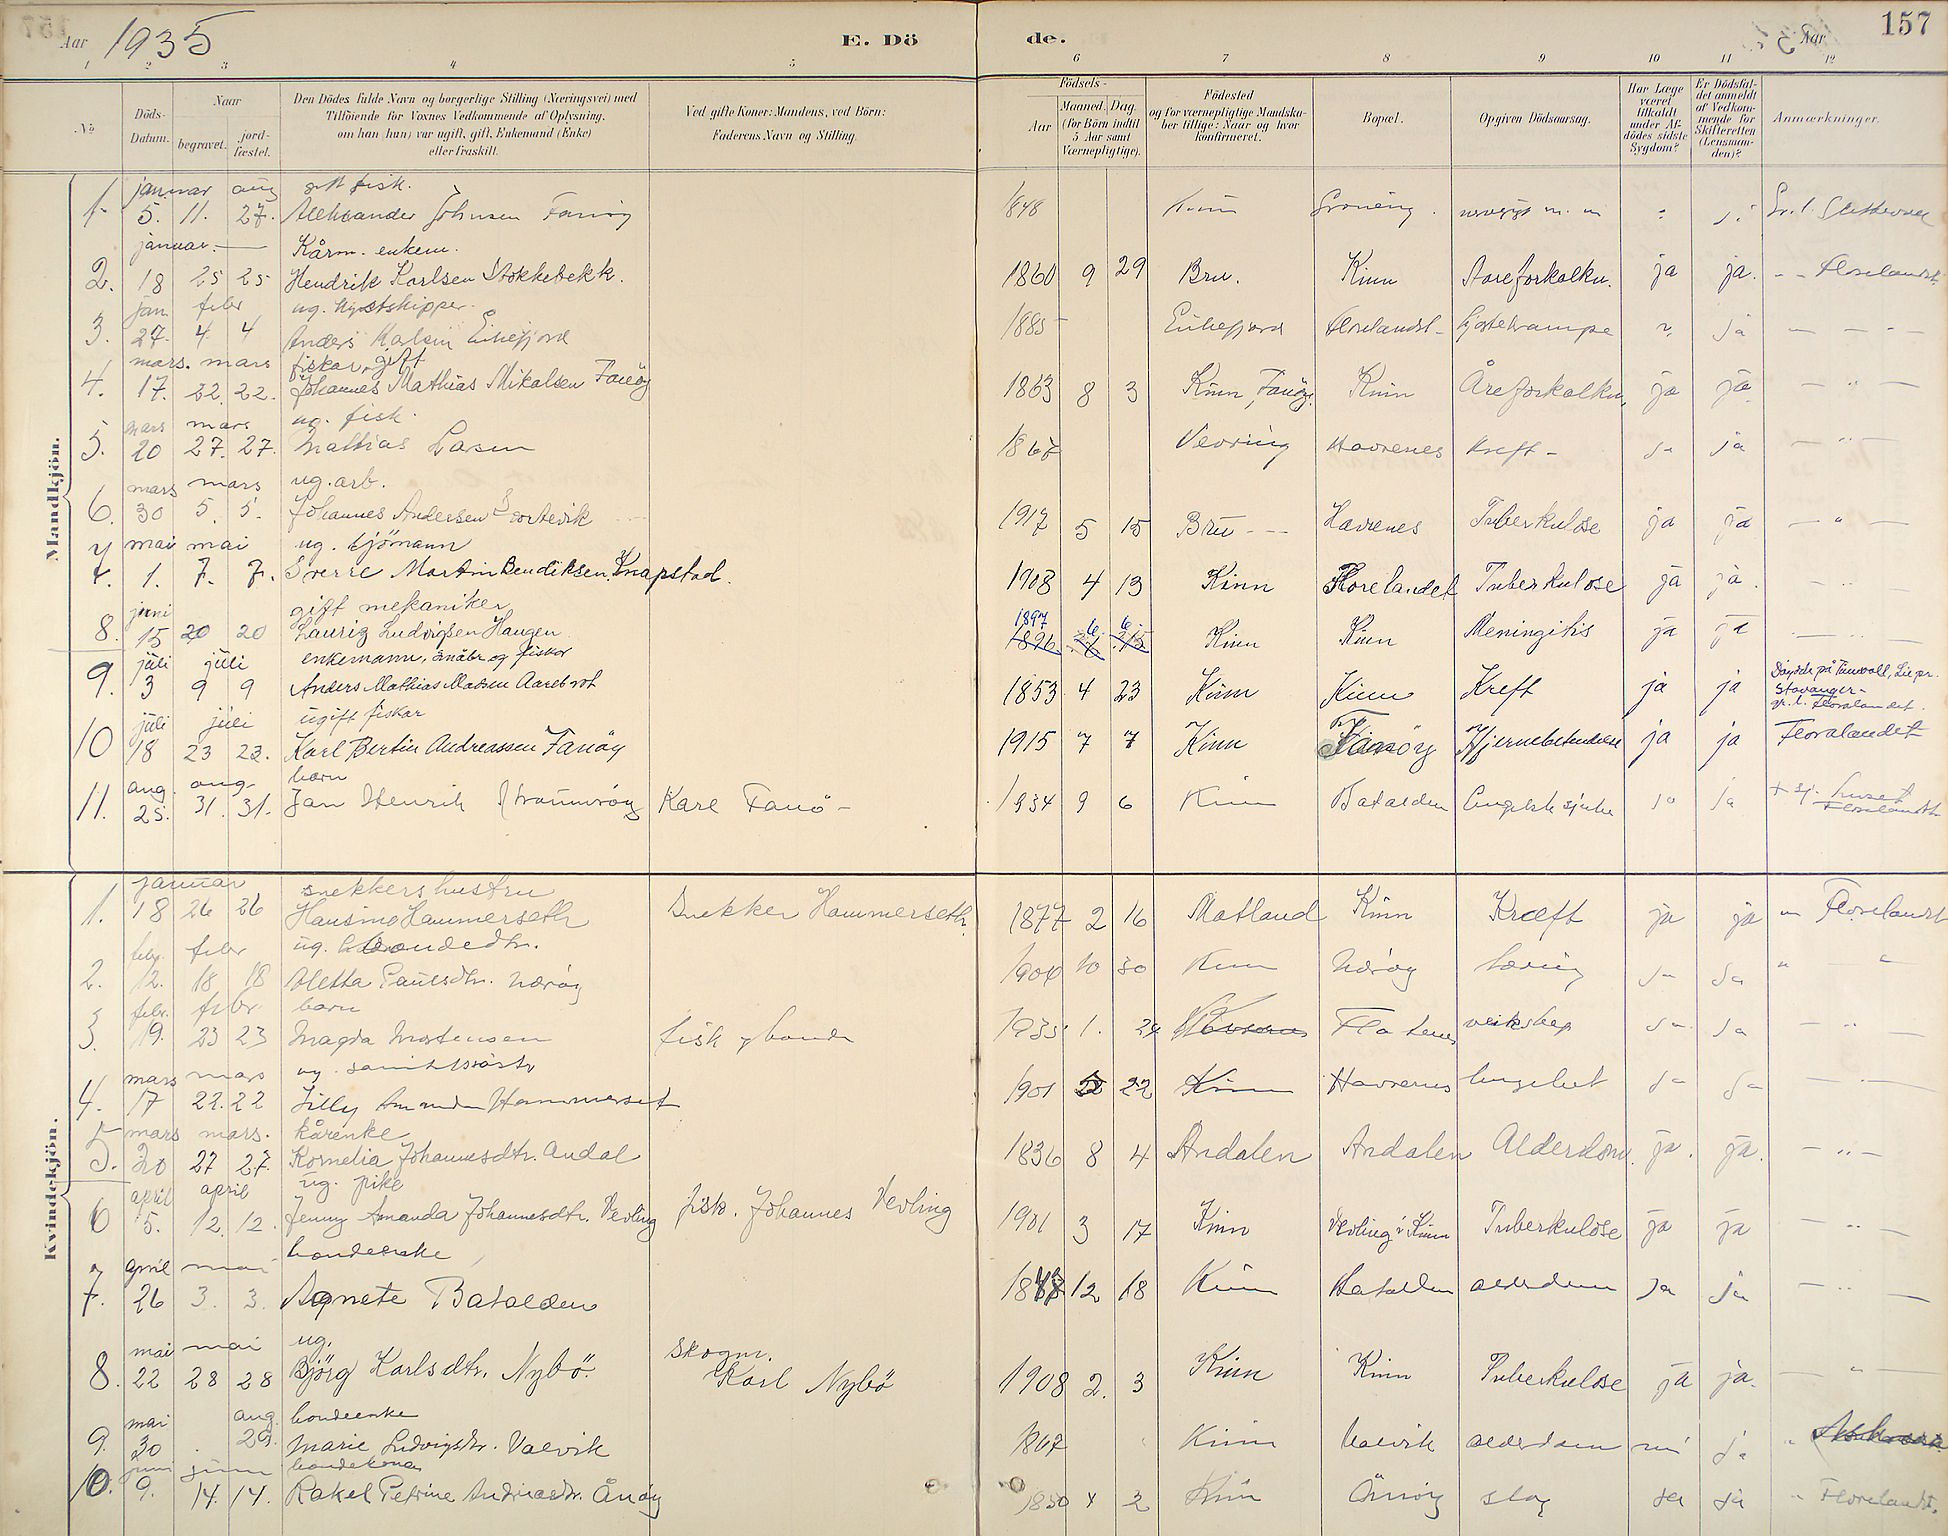 Aar 1935 E. Dö de. Aar 157
1 2 3 4 5 6 7 8 9 10 11 12
№ Döds-Datum. Naar begravet. jord-fæstet. Den Dödes fulde Navn og borgerlige Stilling (Næringsvei) med Tilföiende for Voxnes Vedkommende af Oplysning, om han (hun) var ugift, gift, Enkemand (Enke) eller fraskilt. Ved gifte Koner: Mandens, ved Börn: Faderens Navn og Stilling. Födsels- Aar Maaned. Dag. (for Börn indtil 5 Aar samt Værnepligtige). Födested og for værnepligtige Mandskaber tillige: Naar og hvor konfirmeret. Bopæl. Opgiven Dödsaarsag. Har Læge været tilkaldt under Afdödes sidste Sygdom? Er Dödsfaldet anmeldt af Vedkommende for Skifteretten (Lensmanden)? Anmærkninger.
Mandkjön.
januar aug gift fisk.
1. 5. 11. 27. Aleksander Johnsen Fanöy 1848 Kinn
januar. Kårm. enkem.
2. 18 25 25 Hendrik Karlsen Stokkebekk. 1860 9 29 Bru. Kinn Aareforkalkn. ja ja. Florelandet
jan febr ug.
3. 27. 4. 4 Anders Eikefjord 1885 Eikefjord Florelandet ja
mars. mars fiskar, gift
4. 17. 22. 22. Johannes Mathias Mikalsen Fanöy 1863 8 3 Kinn, Fanöy. Kinn Åreforkalkn. ja ja
mars mars ug. fisk.
5. 20 27. 27. Mathias Larsen 1867 Vevring Havrenes Kreft ja ja
mars mars ug. arb.
6. 30 5. 5. Johannes Andersen Svortevik 1917 5 15 Bru Havrenes Tuberkulose ja ja
mai mai ug. sjömann
7. 1. 7. 7. Sverre Martin Bendiksen Knapstad. 1908 4 13 Kinn Florelandet Tuberkulose ja ja.
juni gift mekaniker
8. 15 20 20 Lauriz Ludvigsen Haugen 1897 6. 6. 1896 Kinn Kinn Meningitis ja ja
juli juli enkemann, småbr og fiskar
9. 3 9 9 Anders Mathias Madsen Aarebrot 1853 4 23 Kinn Kinn Kreft ja ja Stavanger
juli juli ugift fiskar
10 18 23 23. Karl Bertin Andreassen Fanöy 1915 7 7 Kinn Fanöy Hjernebetendelse ja ja Floralandet
aug. aug. barn
11. 25. 31. 31. Jan Henrik Kare Fanö 1934 9 6 Kinn Batalden Engelsk sjuke ja ja
Kvindekjön.
januar snekkers hustru
1. 18 26 26 Hansine Hammerseth Snekker Hammerseth 1877 2 16 Matland Kinn Kræft ja ja Florelandet
febr. febr ug. bondedtr.
2. 12. 18 18 Aletta Paulsdtr. Nærøy 1904 10 30 Kinn Nærøy Tæring ja ja
febr. febr. barn
3. 19. 23 23 Magda Mortensen fisk og bonde 1935 1. 24 ja ja
mars mars ug.
4. 17 22. 22 Lilly Hammerset 1901 22 Kinn Havrenes ja ja
mars mars. kårenke
5. 20 27 27. Kornelia Johannesdtr. Andal 1836 8 4 Andalen Andalen Alderdom. ja. ja.
april april ug. pike
6 5. 12. 12. Jenny Amanda Johannesdtr. Vevling fisk. Johannes Vevling 1901 3 17 Kinn Vevling i Kinn Tuberkulose ja ja
april mai bondeenke
7. 26 3. 3. Agnete Batalden 12 18 Kinn Batalden alderdom ja ja
mai mai ug. skogm.
8. 22 28 28 Björg Karlsdtr. Nybö. Karl Nybö 1908 2. 3 Kinn Kinn Tuberkulose ja ja.
mai aug. bondeenke
9. 30 29. Marie Ludvigsdtr. Valvik 1867 Kinn Valvik alderdom nei ja
juni juni bondekona
10. 9. 14. 14. Rakel Petrine Andreasdtr. Ånøy 1850 4 2 Kinn Ånnøy slag ja ja Florelandet.